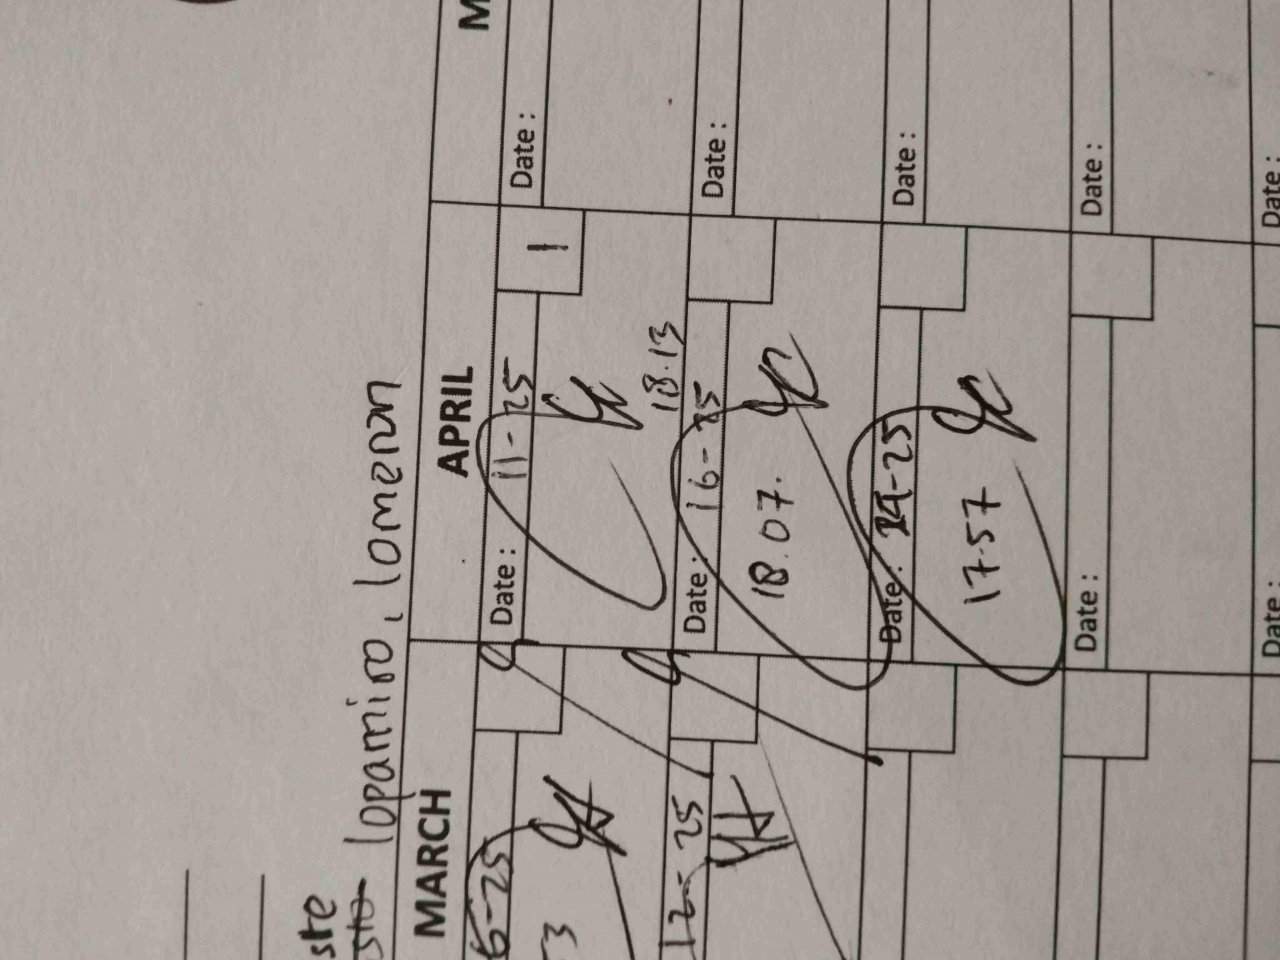 ste
lopamiro, lomeron
MARCH
APRIL
M
6-25
Date: 11-25
1
Date:
3
18.13
12-25
Date: 16-25
Date:
18.07.
Date: 29-25
Date:
17.57
Date:
Date:
Date:
Date: